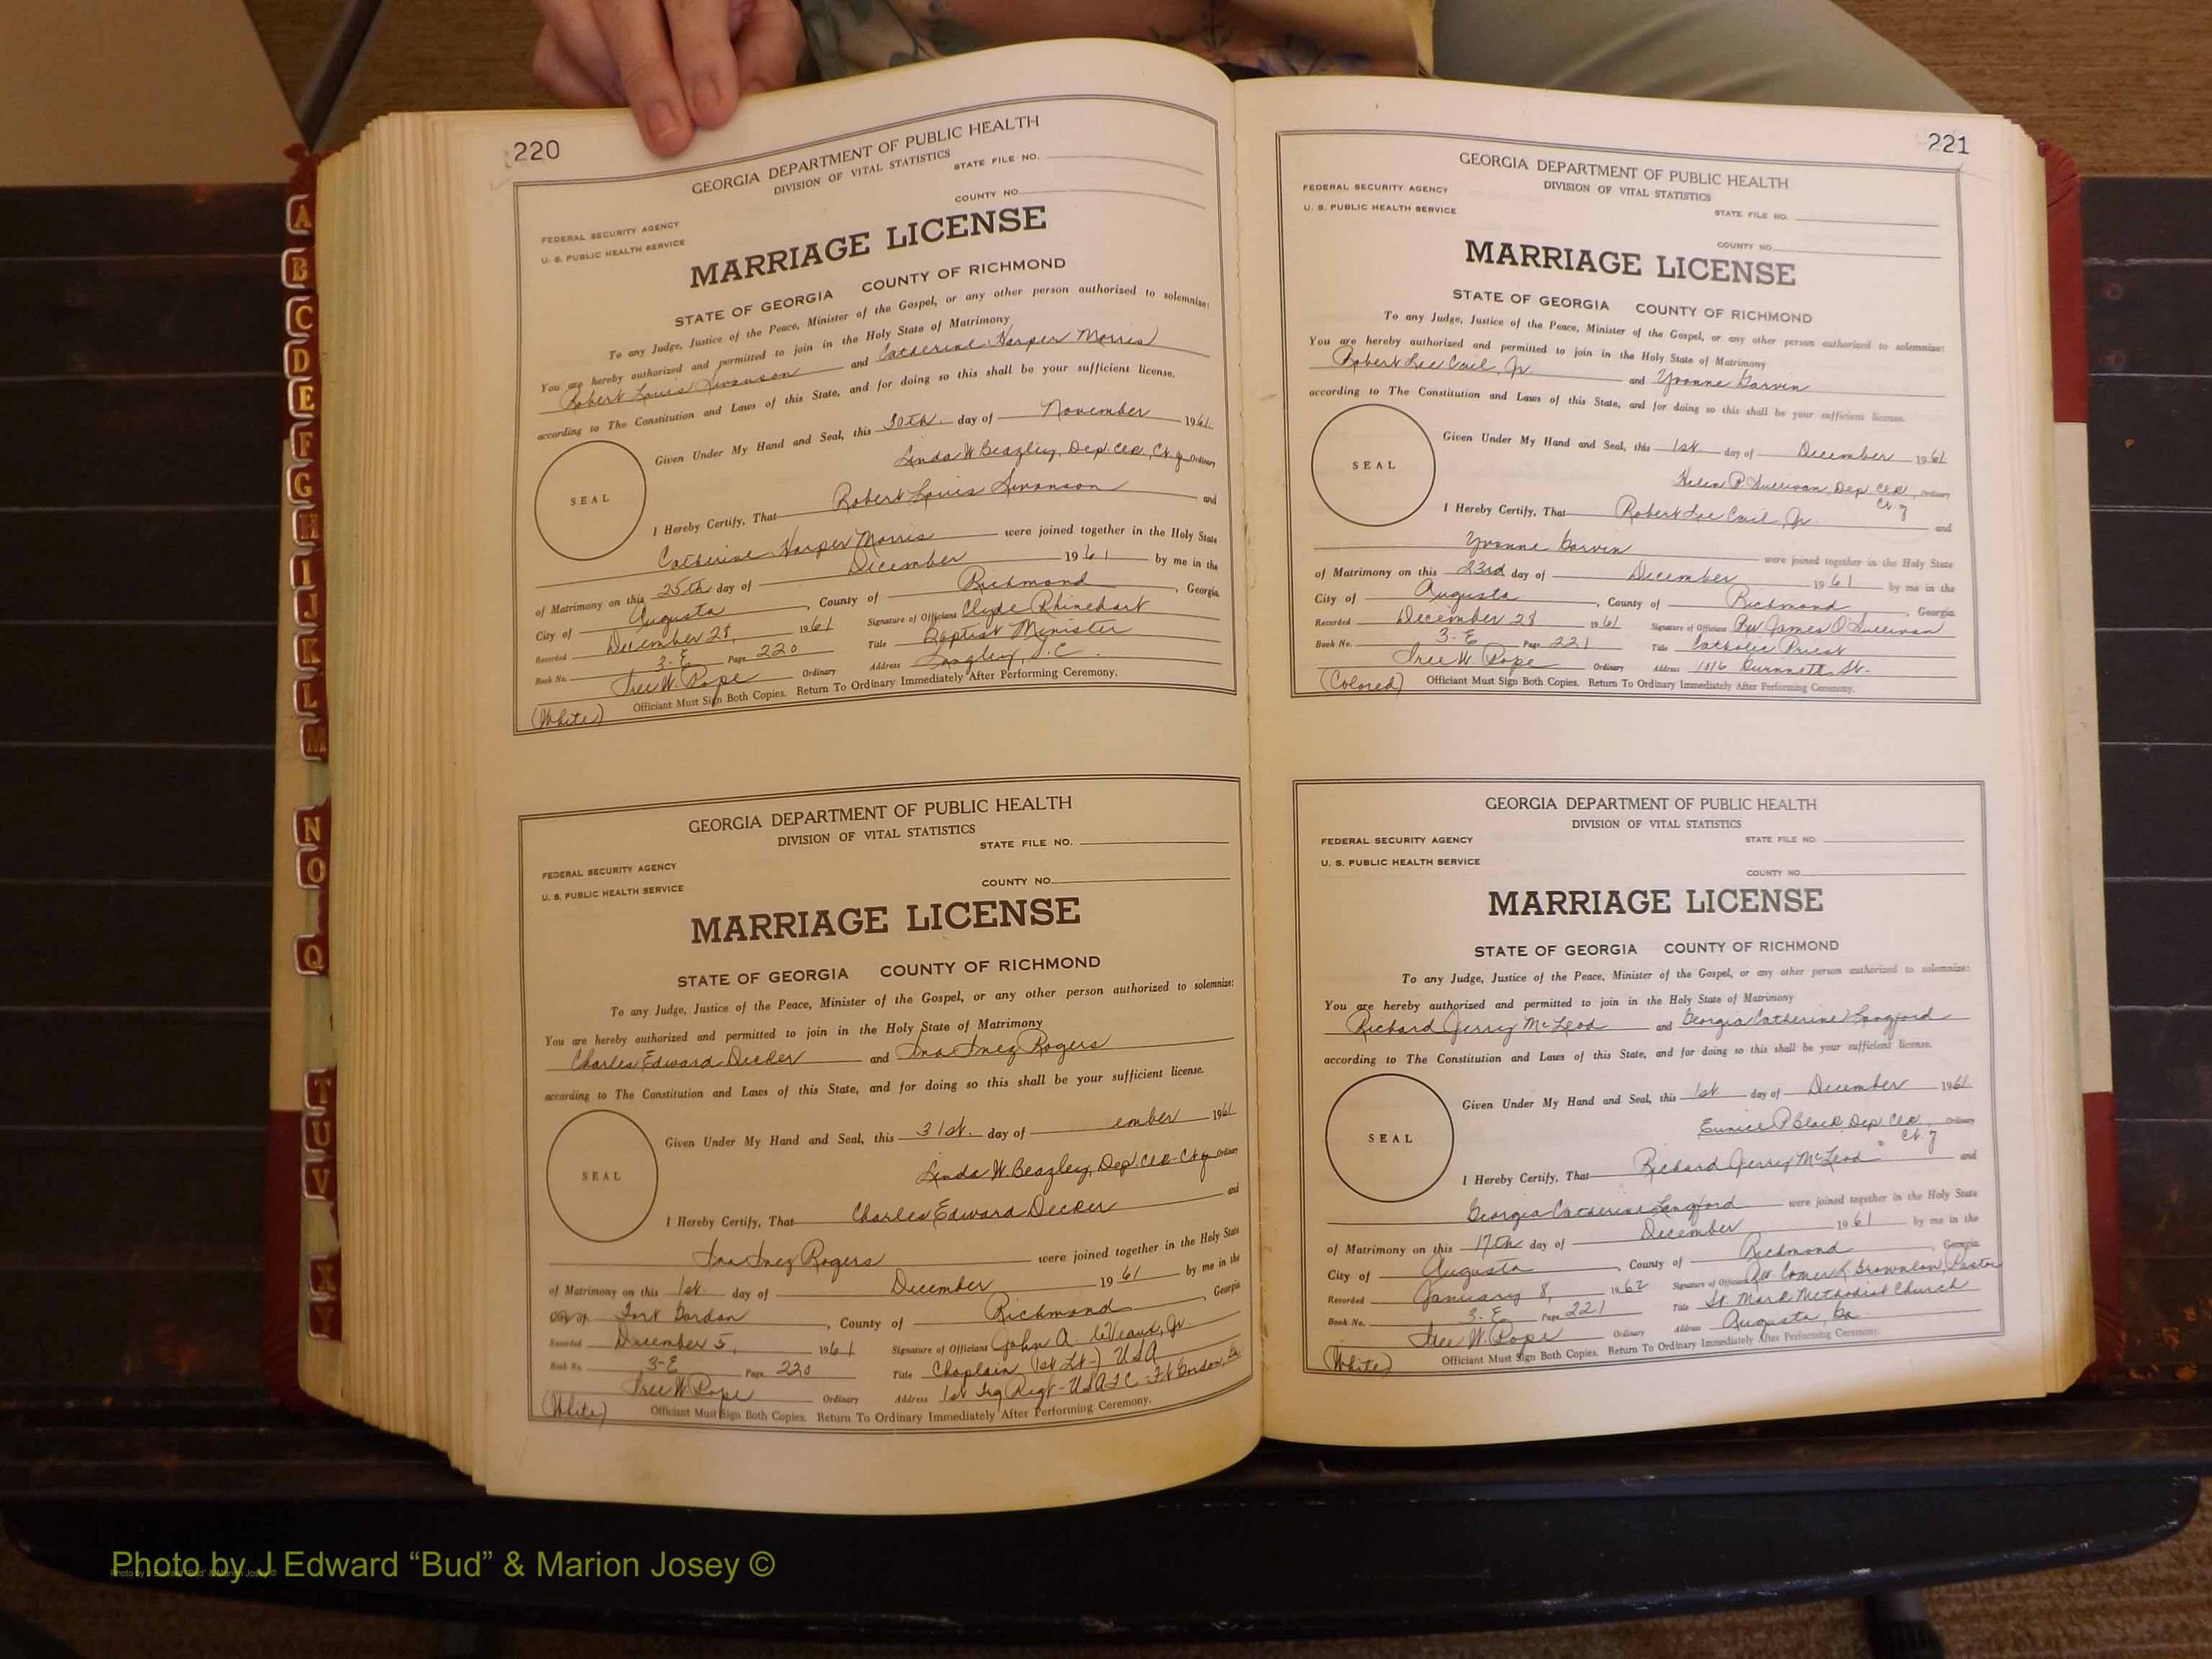 220
GEORGIA DEPARTMENT OF PUBLIC HEALTH
DIVISION OF VITAL STATISTICS
STATE FILE NO.
COUNTY NO.
FEDERAL SECURITY AGENCY
U. S. PUBLIC HEALTH SERVICE
MARRIAGE LICENSE
STATE OF GEORGIA COUNTY OF RICHMOND
To any Judge, Justice of the Peace, Minister of the Gospel, or any other person authorized to solemnize:
You are hereby authorized and permitted to join in the Holy State of Matrimony
Robert Louis Swanson and Catherine Harper Morris
according to The Constitution and Laws of this State, and for doing so this shall be your sufficient license.
Given Under My Hand and Seal, this 30th day of November 1961
Linda W. Beazley, Dep. Clk, Ct. of Ordinary
SEAL
I Hereby Certify, That Robert Louis Swanson and
Catherine Harper Morris were joined together in the Holy State
of Matrimony on this 25th day of December 1961 by me in the
City of Augusta, County of Richmond, Georgia.
Recorded December 28, 1961 Signature of Officiant Clyde Rhinehart
Book No. 3-E Page 220 Title Baptist Minister
Ordinary Address Langley, S.C.
(White) Officiant Must Sign Both Copies. Return To Ordinary Immediately After Performing Ceremony.
GEORGIA DEPARTMENT OF PUBLIC HEALTH
DIVISION OF VITAL STATISTICS
STATE FILE NO.
FEDERAL SECURITY AGENCY
U. S. PUBLIC HEALTH SERVICE
COUNTY NO.
MARRIAGE LICENSE
STATE OF GEORGIA COUNTY OF RICHMOND
To any Judge, Justice of the Peace, Minister of the Gospel, or any other person authorized to solemnize:
You are hereby authorized and permitted to join in the Holy State of Matrimony
Charles Edward Decker and Ina Inez Rogers
according to The Constitution and Laws of this State, and for doing so this shall be your sufficient license.
Given Under My Hand and Seal, this 31st. day of ember 1961
Linda W. Beazley, Dep Clk Ct of Ordinary
SEAL
I Hereby Certify, That Charles Edward Decker and
Ina Inez Rogers were joined together in the Holy State
of Matrimony on this 1st. day of December 1961 by me in the
City of Fort Gordon, County of Richmond, Georgia
Recorded December 5, 1961 Signature of Officiant John A. Jr.
Book No. 3-E Page 220 Title Chaplain (1st Lt.) USA
Ordinary Address 1st Trg Regt - USATC - Ft Gordon, Ga
(White) Officiant Must Sign Both Copies. Return To Ordinary Immediately After Performing Ceremony.
221
GEORGIA DEPARTMENT OF PUBLIC HEALTH
DIVISION OF VITAL STATISTICS
FEDERAL SECURITY AGENCY
U. S. PUBLIC HEALTH SERVICE
STATE FILE NO.
COUNTY NO.
MARRIAGE LICENSE
STATE OF GEORGIA COUNTY OF RICHMOND
To any Judge, Justice of the Peace, Minister of the Gospel, or any other person authorized to solemnize:
You are hereby authorized and permitted to join in the Holy State of Matrimony
Robert Lee Cail, Jr. and Yvonne Garvin
according to The Constitution and Laws of this State, and for doing so this shall be your sufficient license.
Given Under My Hand and Seal, this 1st. day of December 1961
Helen P. Sullivan, Dep. Clk, Ct. of Ordinary
SEAL
I Hereby Certify, That Robert Lee Cail, Jr. and
Yvonne Garvin were joined together in the Holy State
of Matrimony on this 23rd day of December 1961 by me in the
City of Augusta, County of Richmond, Georgia
Recorded December 28 1961 Signature of Officiant Rev James O'Sullivan
Book No. 3-E Page 221 Title Catholic Priest
Ordinary Address St.
(Colored) Officiant Must Sign Both Copies. Return To Ordinary Immediately After Performing Ceremony.
GEORGIA DEPARTMENT OF PUBLIC HEALTH
DIVISION OF VITAL STATISTICS
FEDERAL SECURITY AGENCY
STATE FILE NO.
U. S. PUBLIC HEALTH SERVICE
COUNTY NO.
MARRIAGE LICENSE
STATE OF GEORGIA COUNTY OF RICHMOND
To any Judge, Justice of the Peace, Minister of the Gospel, or any other person authorized to solemnize:
You are hereby authorized and permitted to join in the Holy State of Matrimony
Richard Jerry McLeod and Georgia Catherine Langford
according to The Constitution and Laws of this State, and for doing so this shall be your sufficient license.
Given Under My Hand and Seal, this 1st. day of December 1961
Eunice P Black, Dep. Clk, Ct. of Ordinary
SEAL
I Hereby Certify, That Richard Jerry McLeod and
Georgia Catherine Langford were joined together in the Holy State
of Matrimony on this 17th day of December 1961 by me in the
City of Augusta, County of Richmond, Georgia
Recorded January 8, 1962 Signature of Officiant Rev Comer L Brownlon, Pastor
Book No. 3-E Page 221 Title St. Mark Methodist Church
Ordinary Address Augusta, Ga.
(White) Officiant Must Sign Both Copies. Return To Ordinary Immediately After Performing Ceremony.
A
B
C
D
E
F
G
H
I
J
K
L
M
N
O
Q
T
U
V
Photo by J Edward “Bud” & Marion Josey ©
Photo by J Edward "Bud" & Marion Josey ©